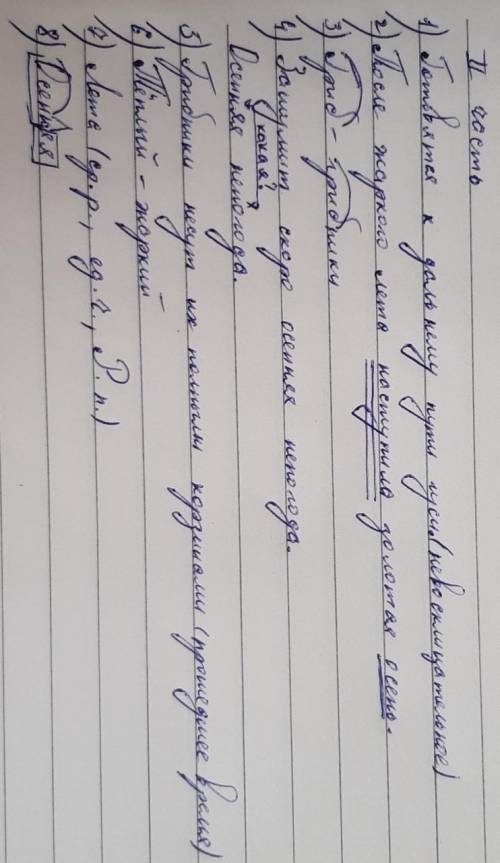 II часть
1) Готовятся к дальнему пути гуси. (невосклицательное)
2) После жаркого лета наступила золотая осень.
3) Гриб - грибники
4) Зашумит скоро осенняя непогода.
какая?
Осенняя непогода.
5) Грибники несут их полными корзинами (прошедшее время)
6) Тёплый - жаркий
7) Лета (ср.р., ед.ч., Р.п.)
8) Осенняя